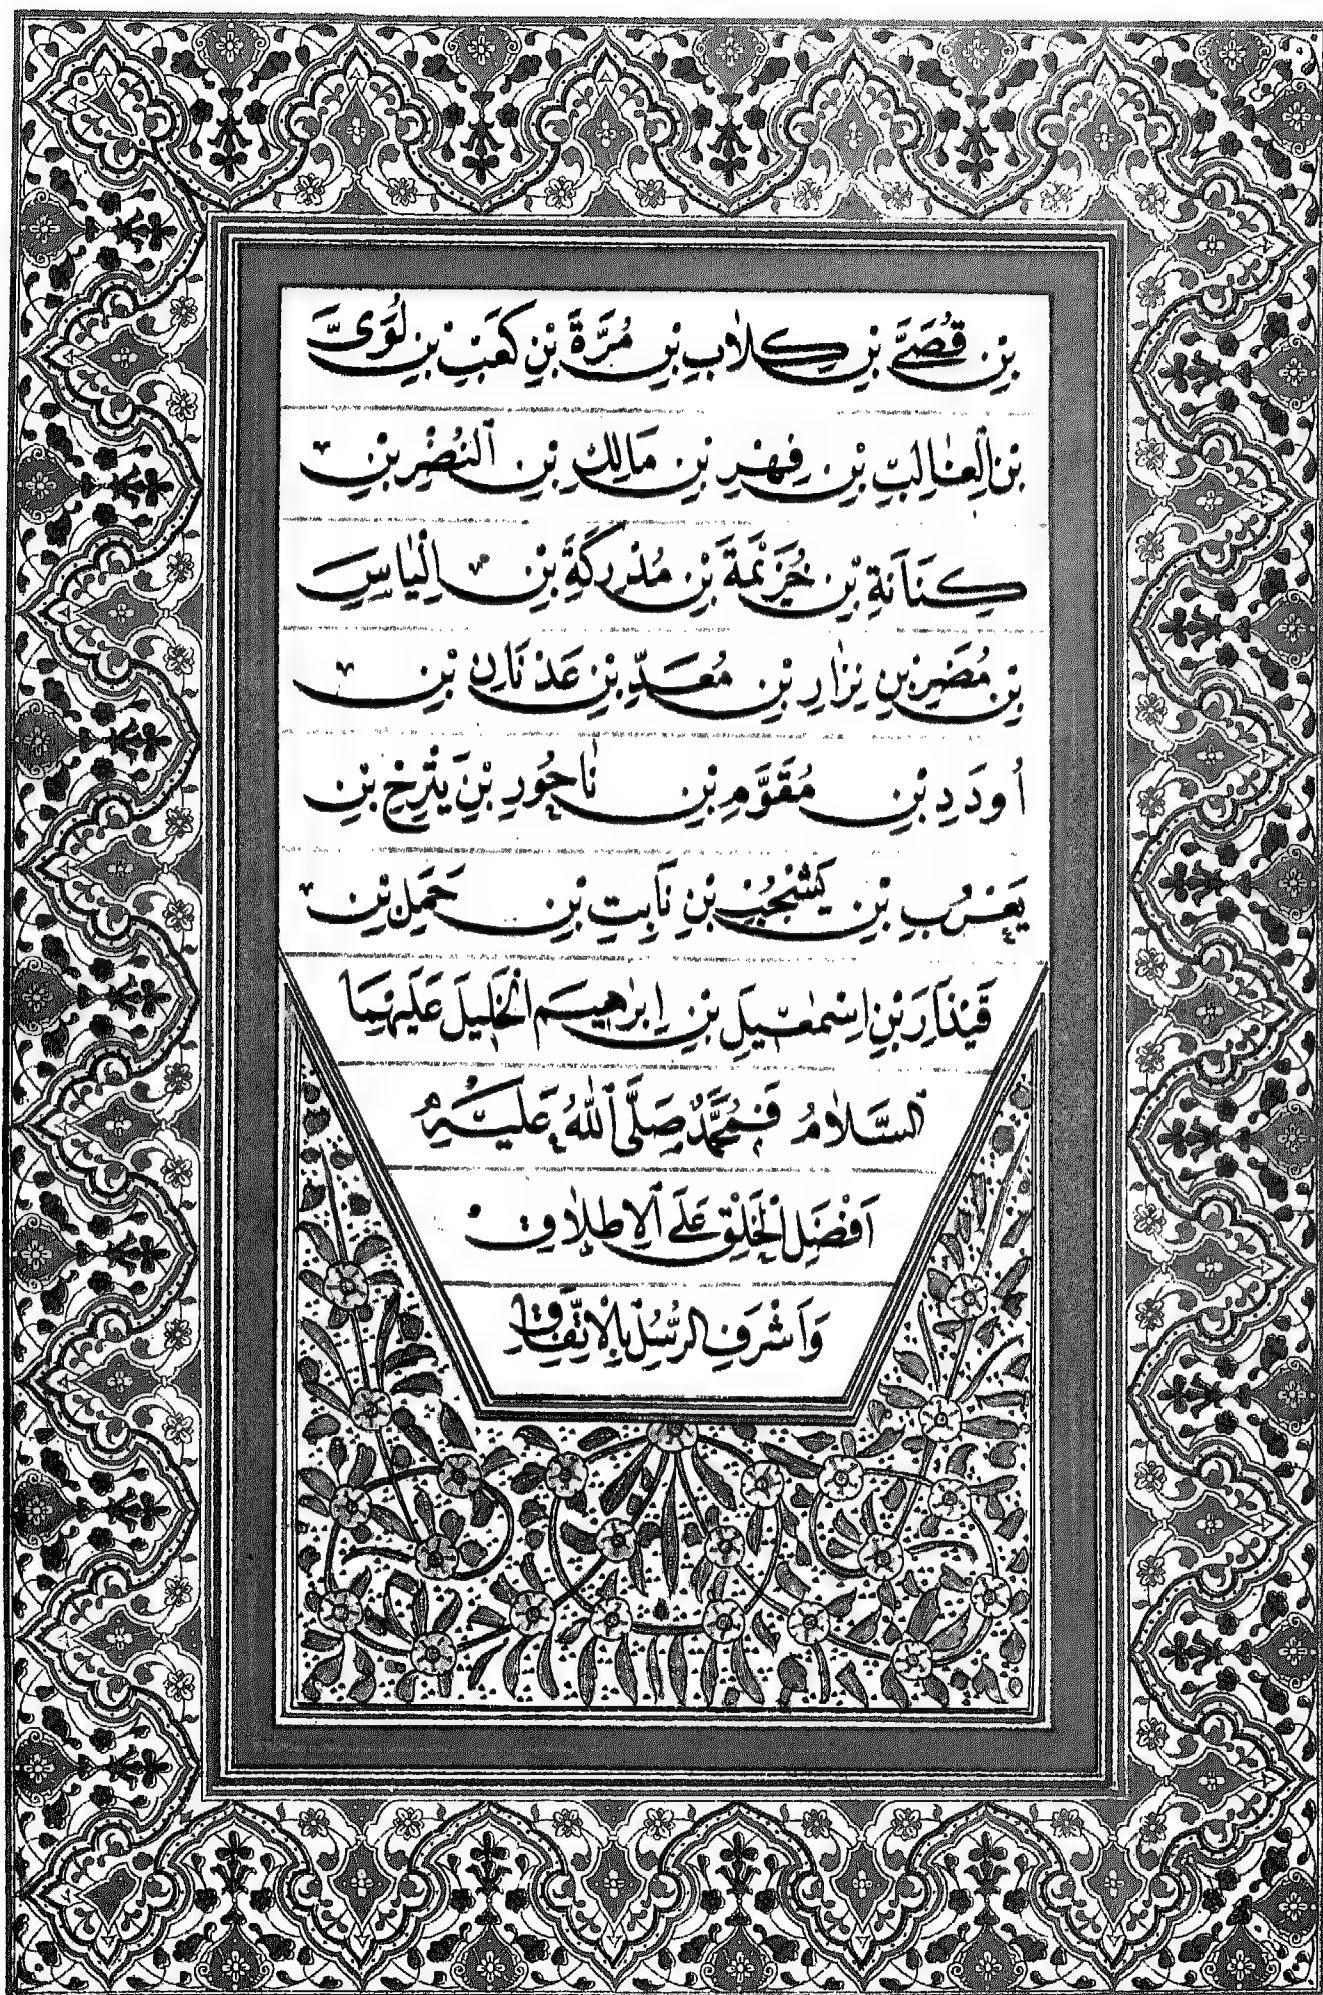 بْنِ قُصَيِّ بْنِ كِلَابِ بْنِ مُرَّةَ بْنِ كَعَبِ بْنِ لُوَىِّ
بْنِ الْغَالِبِ بْنِ فِهْرِ بْنِ مَالِكِ بْنِ النُّضْرِ بْنِ
كِنَانَةِ بْنِ خُزَيْمَةَ بْنِ مُدْرِكَةَ بْنِ اِلْيَاسِ
بْنِ مُضَرِ بْنِ نِزَارِ بْنِ مُعَدِّ بْنِ عَدْنَانِ بْنِ
اُودَدِ بْنِ مُقَوَّمِ بْنِ نَاحُورِ بْنِ يَتْرَخِ بْنِ
يَعْرُبِ بْنِ يَشْجُبِ بْنِ نَابِتِ بْنِ حَمَلِ بْنِ
قَيْذَارَ بْنِ اِسْمٰعِيلَ بْنِ اِبْرٰهِيمَ الْخَلِيلَ عَلَيْهِمَا
السَّلَامُ فَمُحَمَّدٌ صَلَّى اللّٰهُ عَلَيْهِ
اَفْضَلِ الْخَلْقِ عَلَى الْاِطْلَاقِ
وَاَشْرَفِ الرُّسُلِ بِالْاِتِّفَاقِ